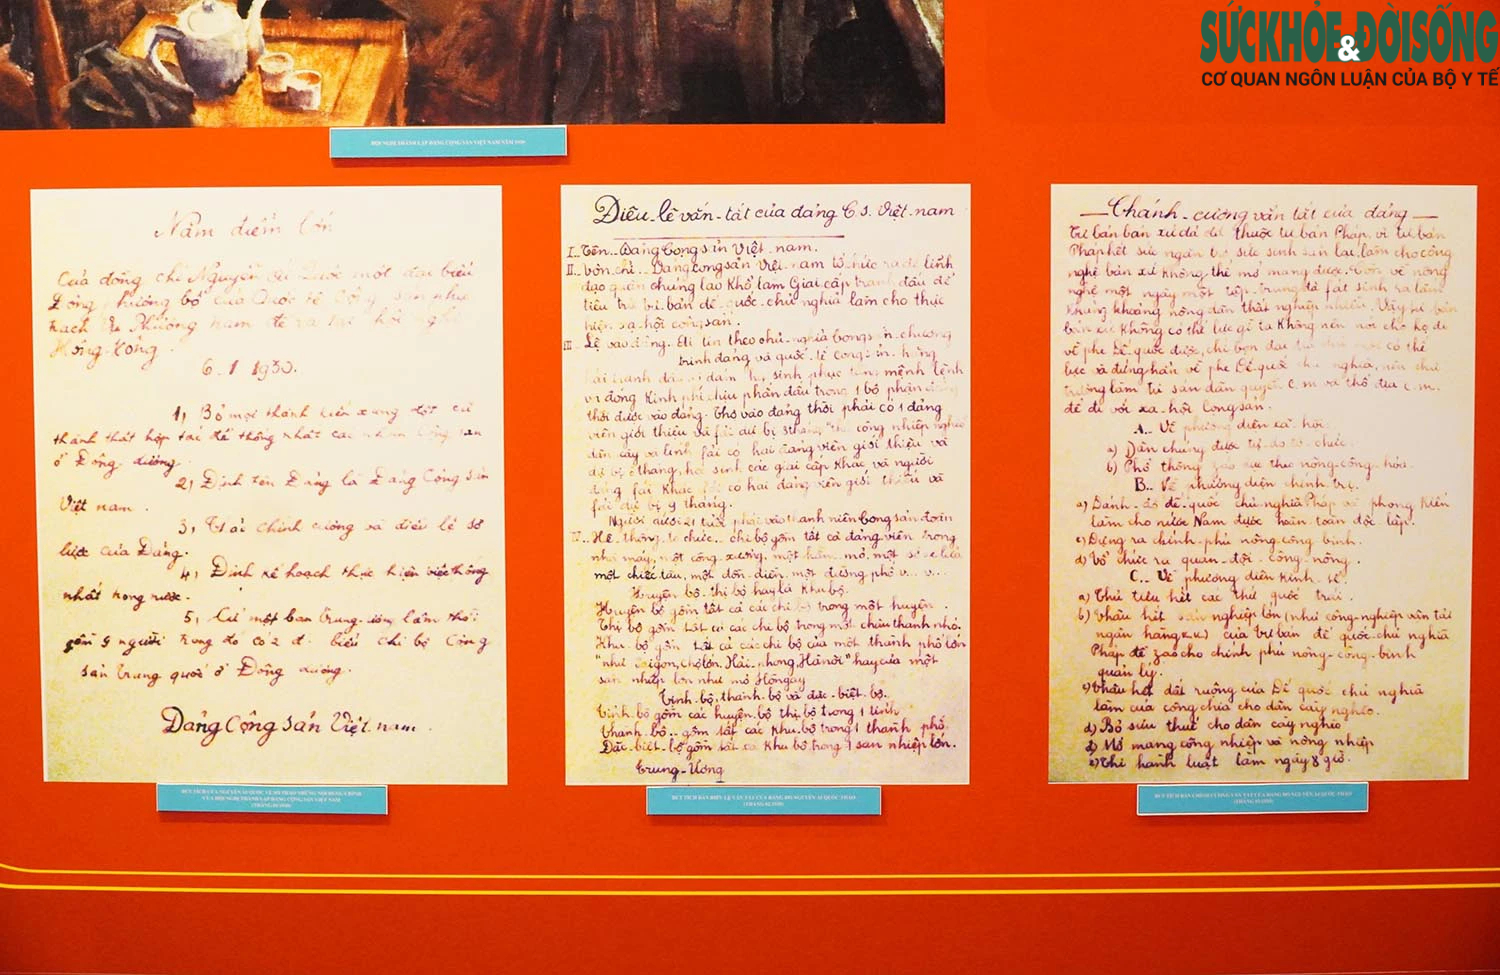 SỨCKHỎE&ĐỜISỐNG
CƠ QUAN NGÔN LUẬN CỦA BỘ Y TẾ
HỘI NGHỊ THÀNH LẬP ĐẢNG CỘNG SẢN VIỆT NAM NĂM 1930
Năm điểm lớn
Của đồng chí Nguyễn Ái Quốc một đại biểu
Đông phương bộ của Quốc tế Cộng sản phụ
trách Phương nam đề ra tại hội nghị
Hồng-Kông.
6.1 1930.
1, Bỏ mọi thành kiến xung đột cũ
thành thật hợp tác để thống nhất các nhóm Cộng sản
ở Đông-dương.
2, Định tên Đảng là Đảng Cộng sản
Việt nam.
3, Thảo chính cương và điều lệ sơ
lược của Đảng.
4, Định kế hoạch thực hiện việc thống
nhất trong nước.
5, Cử một ban Trung ương lâm thời
gồm 9 người trong đó có 2 đ. biểu chi bộ Cộng
sản Trung quốc ở Đông dương.
Đảng Cộng Sản Việt-nam.
Điều-lệ vắn-tắt của đảng C.S. Việt-nam
I.. Tên.. Đảng Cộng sản Việt-nam.
II.. Đảng cộng sản Việt-nam tổ chức ra để lãnh
đạo quần chúng lao khổ làm Giai cấp tranh đấu để
tiêu trừ tư bản đế-quốc-chủ nghĩa làm cho thực
hiện xã-hội cộng sản.
III.. Lệ vào đảng. Ai tin theo chủ-nghĩa cộng sản, chương
trình đảng và quốc-tế Cộng sản, hăng
hái tranh đấu và dám hy sinh phục tùng mệnh lệnh
và đóng Kinh phí chịu phấn đấu trong 1 bộ phận đảng
thời được vào đảng. Thợ vào đảng thời phải có 1 đảng
viên giới thiệu và fải dự bị 3 tháng, thủ công nghiệp nghèo
dân cày và lính fải có hai đảng viên giới thiệu và
dự bị 6 tháng, học sinh các giai cấp khác và người
đảng fái khác fải có hai đảng viên giới thiệu và
fải dự bị 9 tháng.
Người dưới 21 tuổi phải vào thanh niên Cộng sản đoàn
IV.. Hệ-thống tổ chức.. chi bộ gồm tất cả đảng viên trong
nhà máy, một công-xưởng, một hầm mỏ, một sở xe lửa
một chiếc tàu, một đồn-điền, một đường phố v... v...
Huyện bộ, thị bộ hay là khu bộ.
Huyện bộ gồm tất cả các chi bộ trong một huyện.
Thị bộ gồm tất cả các chi bộ trong một châu thành nhỏ.
Khu-bộ gồm tất cả các chi bộ của một thành phố lớn
"như Saigon, Chợlớn, Hải-phòng, Hànội" hay của một
sản nhiệp lớn như mỏ Hòngay
Tỉnh-bộ, thành-bộ và đặc-biệt-bộ.
Tỉnh-bộ gồm các huyện-bộ thị bộ trong 1 tỉnh
Thành-bộ.. gồm tất các khu-bộ trong 1 thành phố.
Đặc-biệt-bộ gồm tất cả khu bộ trong 1 sản nhiệp lớn.
Trung-Ương
Chánh-cương vắn tắt của đảng
Tư bản bản xứ đã thuộc tư bản Pháp, vì tư bản
Pháp hết sức ngăn trở sức sinh sản làm cho công
nghệ bản xứ không thể mở mang được. Còn về nông
nghệ một ngày một tập-trung đã fát sinh ra lắm
khủng khoảng nông dân thất nghiệp nhiều. Vậy tư bản
bản xứ không có thế lực gì ta không nên nói cho họ đi
về phe Đế-quốc được, chỉ bọn đại địa chủ mới có thế
lực và đứng hẳn về phe Đế quốc chủ nghĩa, nên chủ
trương làm tư sản dân quyền c.m và thổ địa c.m.
để đi tới xã-hội Cộng sản.
A.. Về phương diện xã-hội.
a) Dân chúng được tự-do tổ-chức.
b) Phổ thông záo dục theo nông-công-hóa.
B.. Về phương diện chính trị.
a) Đánh-đổ đế-quốc chủ nghĩa Pháp và phong kiến
làm cho nước Nam được hoàn-toàn độc lập.
c) Dựng ra chính-phủ nông-công binh.
d) Tổ chức ra quân-đội công-nông.
C.. Về phương diện kinh-tế.
a) Thủ tiêu hết các thứ quốc trái.
b) Thâu hết sản nghiệp lớn (như công-nghiệp vận tải
ngân hàng v.v.) của Tư bản đế quốc-chủ nghĩa
Pháp để zao cho chính phủ nông-công-binh
quản lý.
c) Thâu hết đất ruộng của Đế quốc chủ nghĩa
làm của công chia cho dân cày nghèo.
d) Bỏ sưu thuế cho dân cày nghèo
đ) Mở mang công nghiệp và nông nghiệp
e) Thi hành luật làm ngày 8 giờ.
BÚT TÍCH CỦA NGUYỄN ÁI QUỐC VỀ DỰ THẢO NHỮNG NỘI DUNG CHÍNH
CỦA HỘI NGHỊ THÀNH LẬP ĐẢNG CỘNG SẢN VIỆT NAM
BÚT TÍCH BẢN ĐIỀU LỆ VẮN TẮT CỦA ĐẢNG DO NGUYỄN ÁI QUỐC THẢO
(THÁNG 02/1930)
BÚT TÍCH BẢN CHÍNH CƯƠNG VẮN TẮT CỦA ĐẢNG DO NGUYỄN ÁI QUỐC THẢO